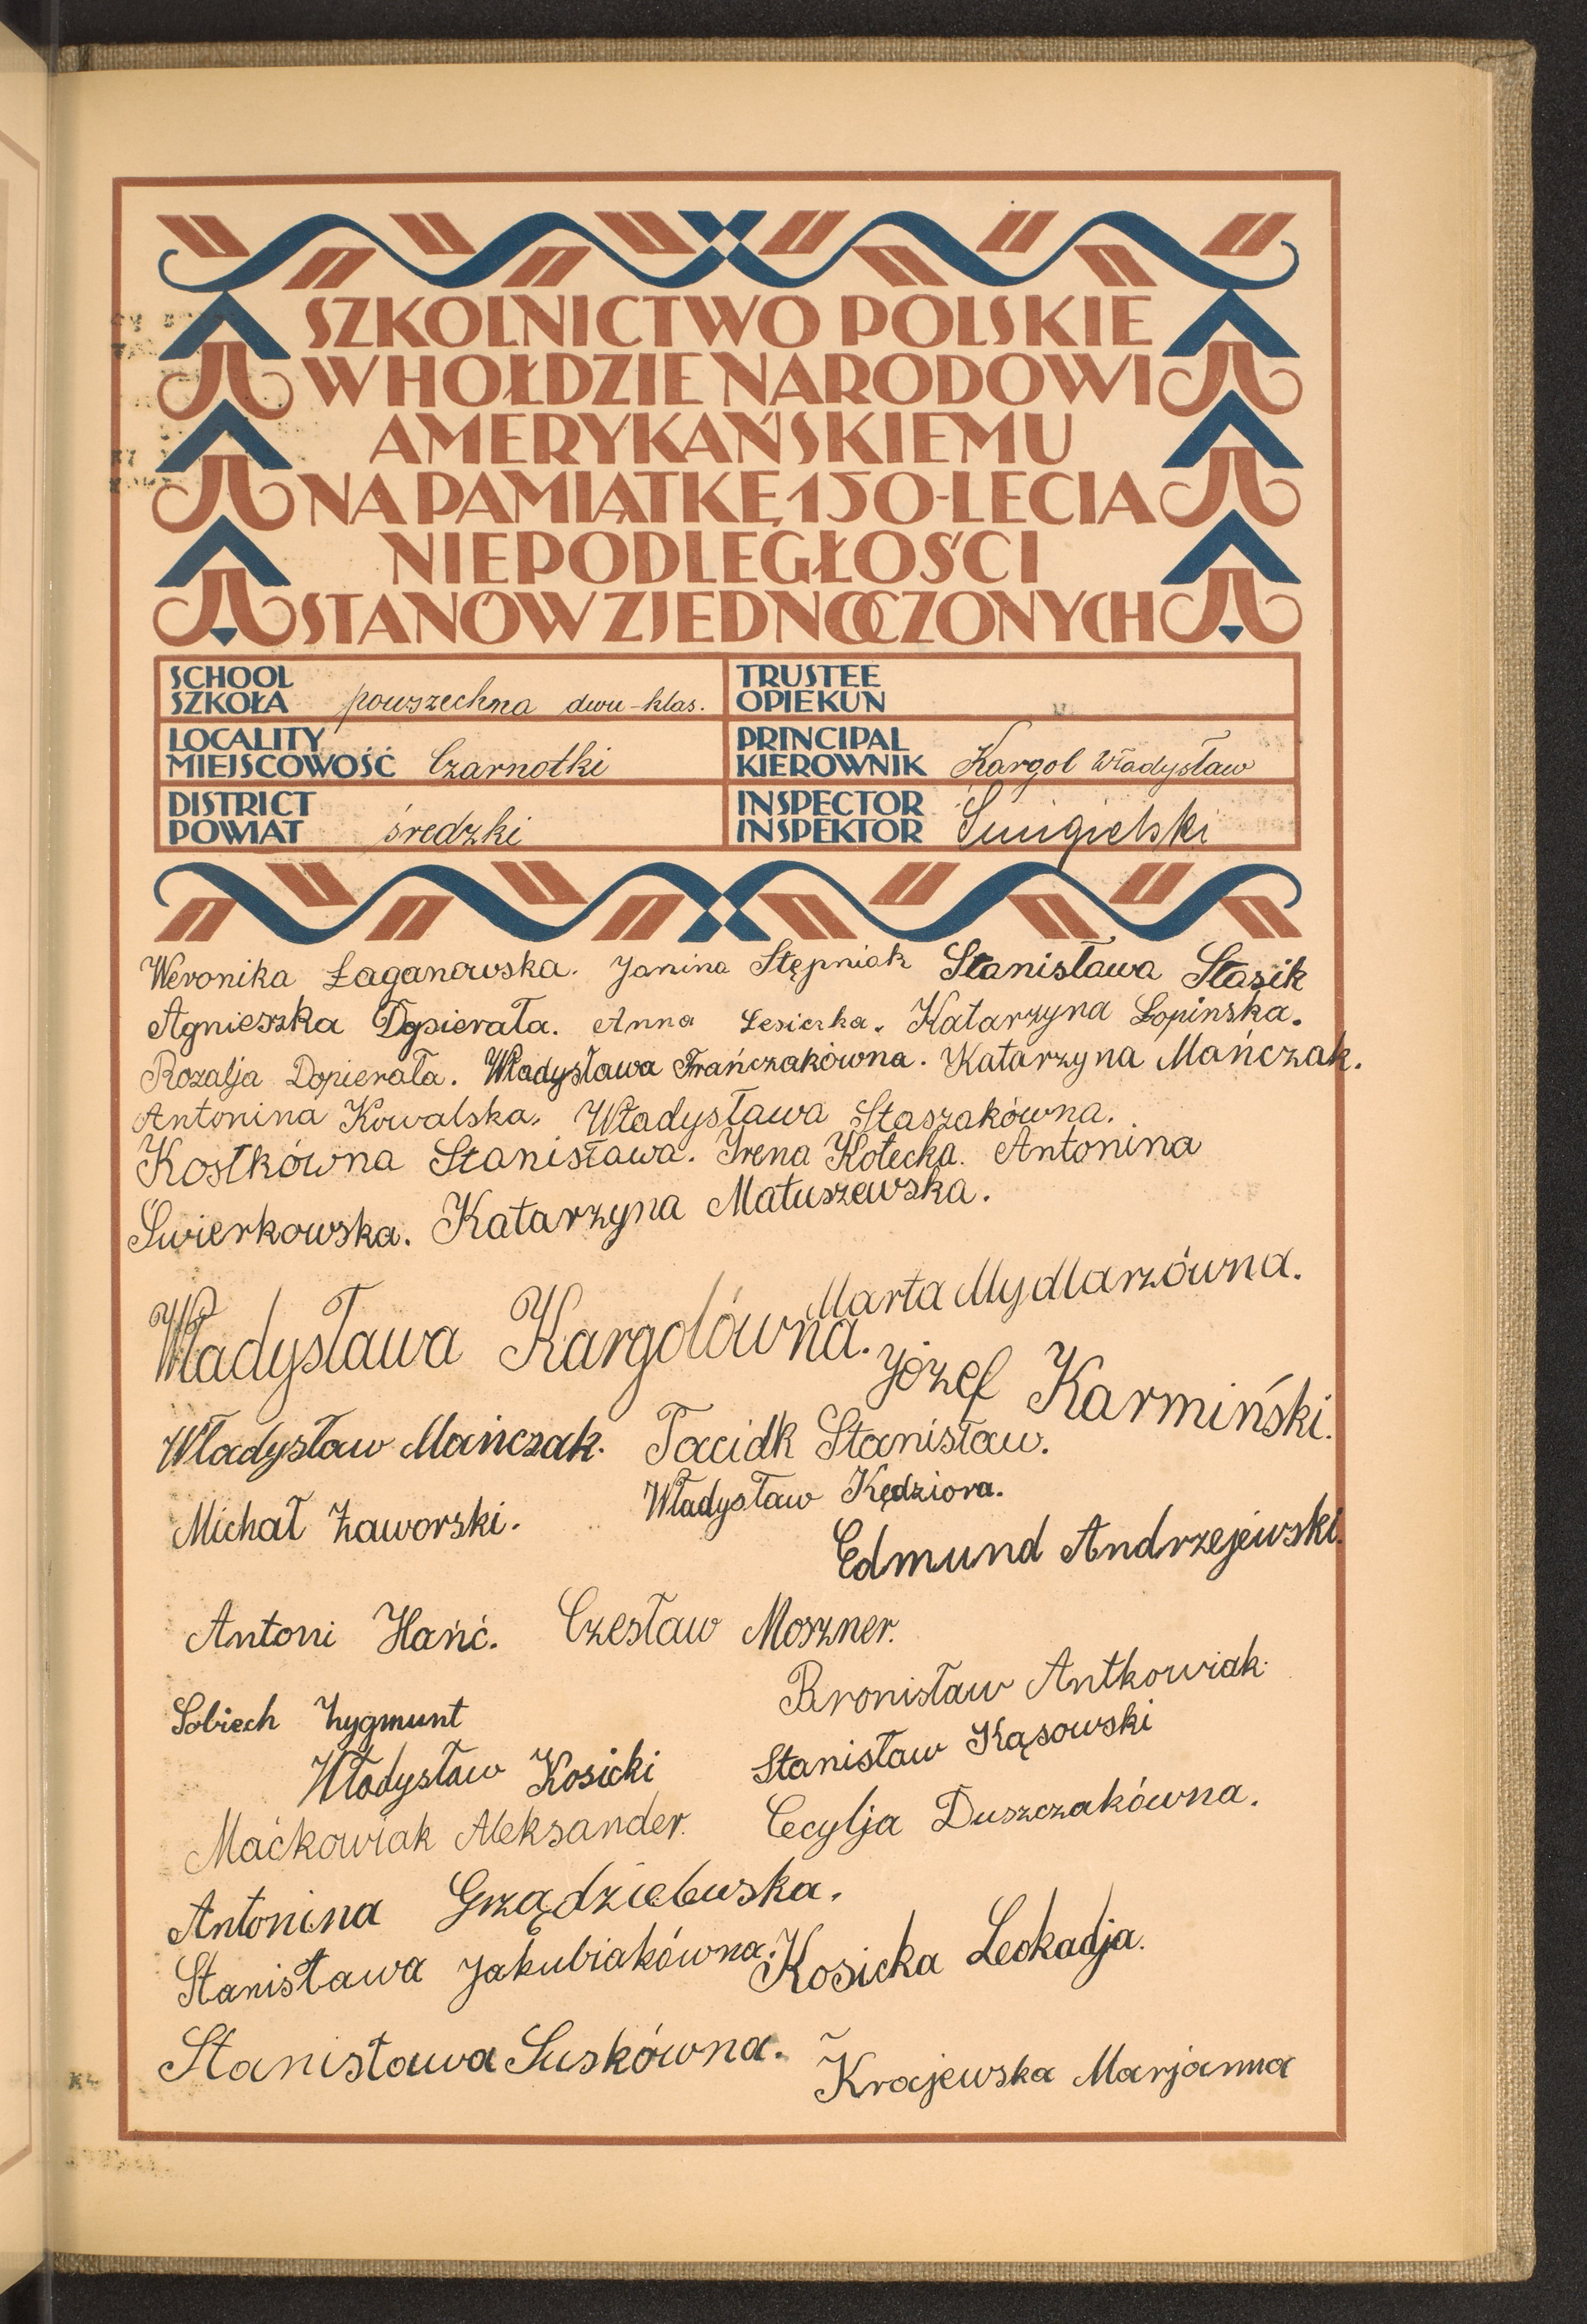 SZKOLNICTWO POLSKIE
W HOŁDZIE NARODOWI
AMERYKAŃSKIEMU
NA PAMIĄTKĘ 150-LECIA
NIEPODLEGŁOŚCI
STANÓW ZJEDNOCZONYCH
SCHOOL
SZKOŁA powszechna dwu-klas.
TRUSTEE
OPIEKUN
LOCALITY
MIEJSCOWOŚĆ Czarnotki
PRINCIPAL
KIEROWNIK Kargol Władysław
DISTRICT
POWIAT średzki
INSPECTOR
INSPEKTOR Śmigielski
Weronika Łaganowska. Janina Stępniak Stanisława Stasik
Agnieszka Dopierała. Anna Lesiczka. Katarzyna Łopinska.
Rozalja Dopierała. Władysława Frańczakówna. Katarzyna Mańczak.
Antonina Kowalska. Władysława Staszakówna.
Kostkówna Stanisława. Irena Kotecka. Antonina
Świerkowska. Katarzyna Matuszewska.
Marta Mydlarzówna.
Władysława Kargolówna.
Józef Karmiński.
Władysław Mańczak. Tacidk Stanisław.
Michał Zaworski. Władysław Kędziora.
Edmund Andrzejewski.
Antoni Hańć. Czesław Moszner.
Bronisław Antkowiak.
Sobiech Zygmunt
Stanisław Kąsowski
Władysław Kosicki
Maćkowiak Aleksander. Cecylja Duszczakówna.
Antonina Grządzielewska.
Stanisława Jakubiakówna. Kosicka Leokadja.
Stanisława Suskówna. Krajewska Marjanna